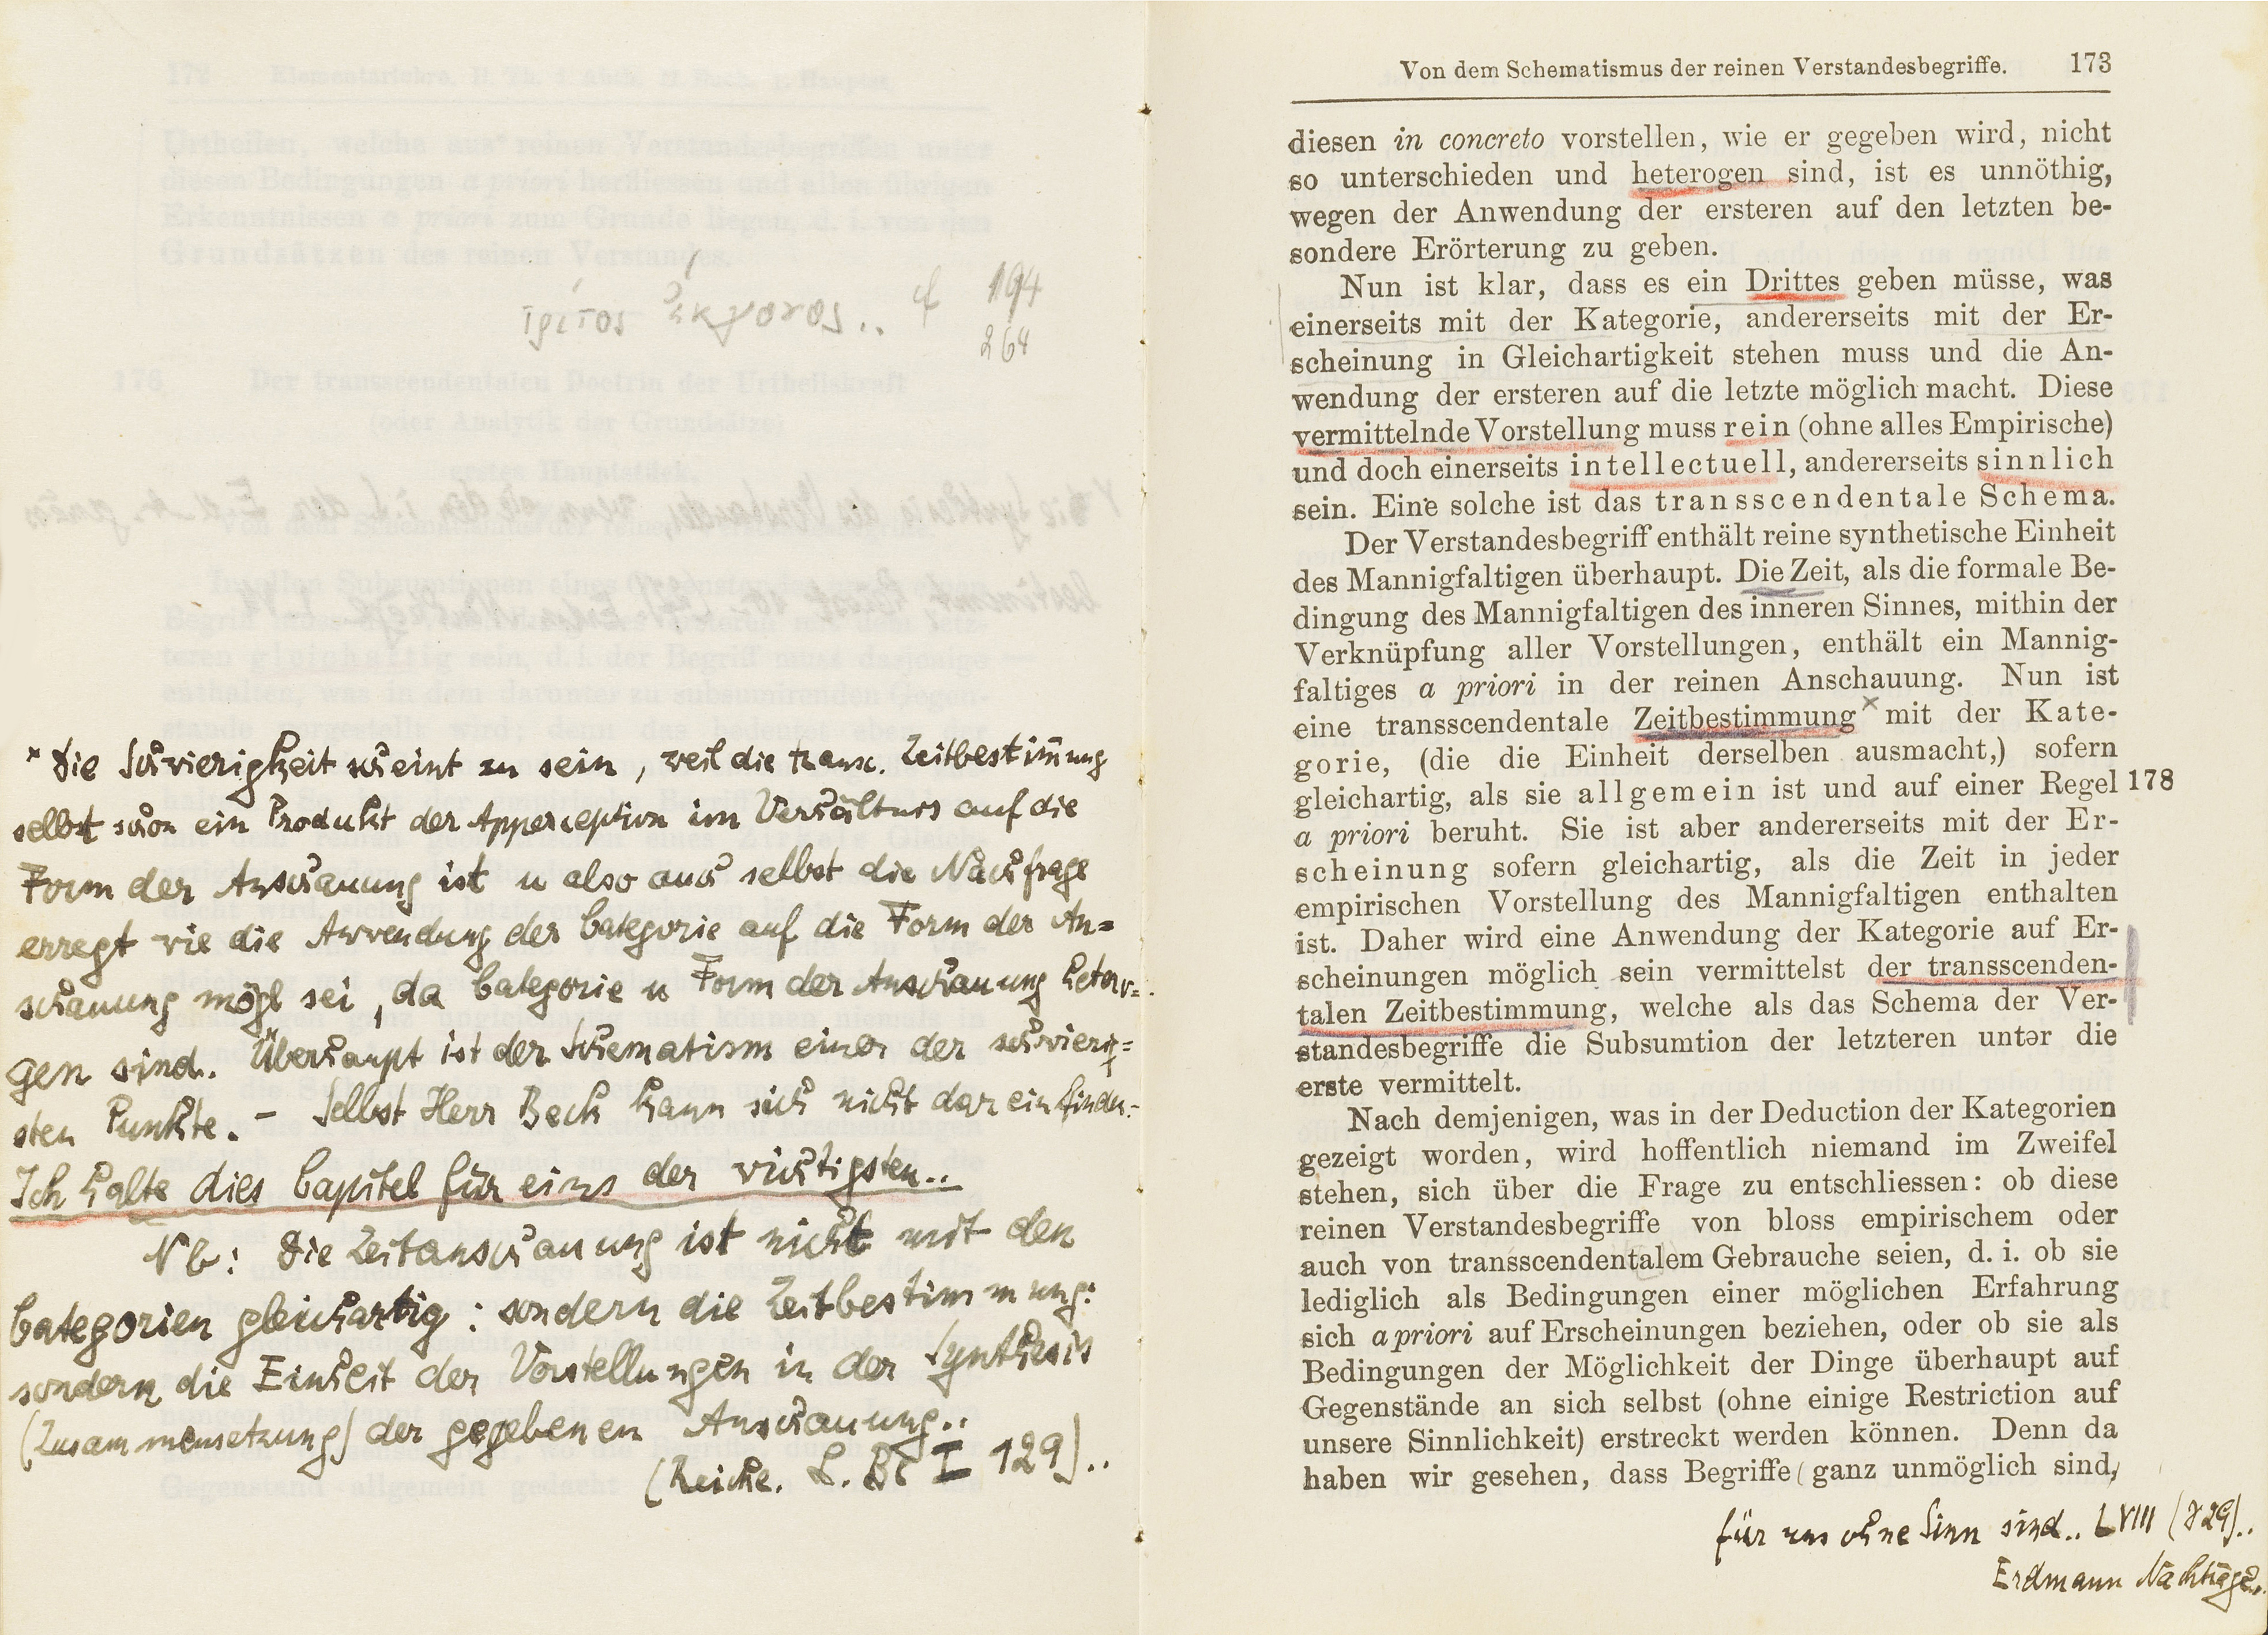 τρίτος ἔκγονος.. cf 194
264
× Die Schwierigkeit scheint zu sein, weil die transc. Zeitbestim̄ung
selbst schon ein Produkt der Apperception im Verhältnis auf die
Form der Anschauung ist u also auch selbst die Nachfrage
erregt wie die Anwendung der Categorie auf die Form der An=
schauung mögl sei, da Categorie u Form der Anschauung hetero=
gen sind. Überhaupt ist der Schematism einer der schwierig=
sten Punkte. – Selbst Herr Beck kann sich nicht darein finden.-
Ich halte dies Capitel für eins der wichtigsten..
Nb: Die Zeitanschauung ist nicht mit den
Categorien gleichartig: sondern die Zeitbestimmung:
sondern die Einheit der Vorstellungen in der Synthesis
(Zusammensetzung) der gegebenen Anschauung..
(Reicke. L. Bl I 129)..
Von dem Schematismus der reinen Verstandesbegriffe. 173
diesen in concreto vorstellen, wie er gegeben wird, nicht
so unterschieden und heterogen sind, ist es unnöthig,
wegen der Anwendung der ersteren auf den letzten be-
sondere Erörterung zu geben.
Nun ist klar, dass es ein Drittes geben müsse, was
einerseits mit der Kategorie, andererseits mit der Er-
scheinung in Gleichartigkeit stehen muss und die An-
wendung der ersteren auf die letzte möglich macht. Diese
vermittelnde Vorstellung muss rein (ohne alles Empirische)
und doch einerseits intellectuell, andererseits sinnlich
sein. Eine solche ist das transscendentale Schema.
Der Verstandesbegriff enthält reine synthetische Einheit
des Mannigfaltigen überhaupt. Die Zeit, als die formale Be-
dingung des Mannigfaltigen des inneren Sinnes, mithin der
Verknüpfung aller Vorstellungen, enthält ein Mannig-
faltiges a priori in der reinen Anschauung. Nun ist
eine transscendentale Zeitbestimmung × mit der Kate-
gorie, (die die Einheit derselben ausmacht,) sofern
gleichartig, als sie allgemein ist und auf einer Regel 178
a priori beruht. Sie ist aber andererseits mit der Er-
scheinung sofern gleichartig, als die Zeit in jeder
empirischen Vorstellung des Mannigfaltigen enthalten
ist. Daher wird eine Anwendung der Kategorie auf Er-
scheinungen möglich sein vermittelst der transscenden-
talen Zeitbestimmung, welche als das Schema der Ver-
standesbegriffe die Subsumtion der letzteren unter die
erste vermittelt.
Nach demjenigen, was in der Deduction der Kategorien
gezeigt worden, wird hoffentlich niemand im Zweifel
stehen, sich über die Frage zu entschliessen: ob diese
reinen Verstandesbegriffe von bloss empirischem oder
auch von transscendentalem Gebrauche seien, d. i. ob sie
lediglich als Bedingungen einer möglichen Erfahrung
sich a priori auf Erscheinungen beziehen, oder ob sie als
Bedingungen der Möglichkeit der Dinge überhaupt auf
Gegenstände an sich selbst (ohne einige Restriction auf
unsere Sinnlichkeit) erstreckt werden können. Denn da
haben wir gesehen, dass Begriffe (ganz unmöglich sind,
für uns ohne Sinn sind.. LVIII (329)..
Erdmann Nachträge..